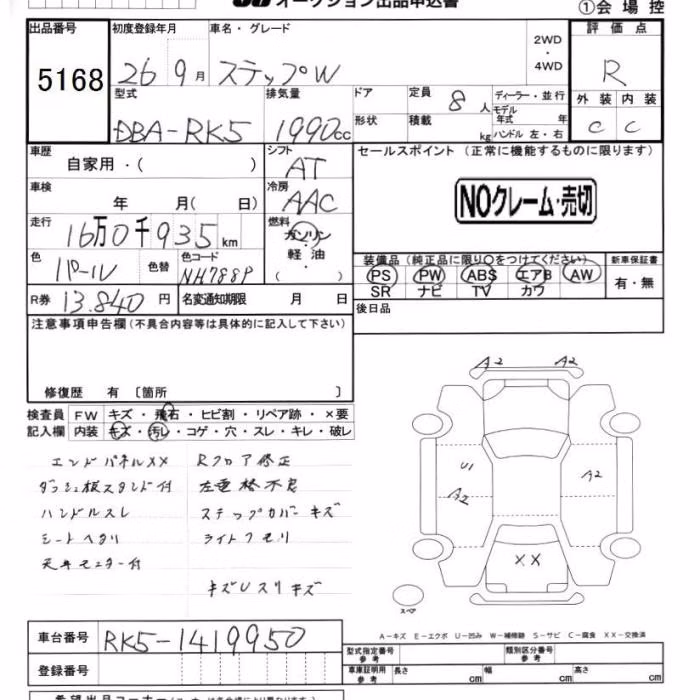 オークション出品申込書
①会 場 控
出品番号 初度登録年月 車名・グレード 評 価 点
5168 26 9月 ステップW 2WD・4WD R
型式 排気量 ドア 定員 8 人 ディーラー・並行 外 装 内 装
モデル年式 年
DBA-RK5 1990cc 形状 積載 kg ハンドル 左・右 C C
車歴 シフト セールスポイント (正常に機能するものに限ります)
自家用・( ) AT
車検 冷房
年 月( 日) AAC NOクレーム・売切
走行 燃料
16万0千935km ガソリン・軽油・( )
色 色替 色コード 装備品 (純正品に限り○をつけてください) 新車保証書
パール NH788P PS PW ABS エアB AW 有・無
SR ナビ TV カワ
R券 13.840 円 名変通知期限 月 日 後日品
注意事項申告欄(不具合内容等は具体的に記入して下さい)
A2 A2
修復歴 有 〔箇所 〕
検査員 FW キズ・飛石・ヒビ割・リペア跡・×要
記入欄 内装 キズ・汚レ・コゲ・穴・スレ・キレ・破レ
エンドパネルXX Rフロア修正
U1 A2
ダッシュ板スタンド付 左電格不良
A2
ハンドルスレ ステップカバーキズ
シートヘタリ ライトクモリ
XX
天井モニター付
キズUスリキズ
スペア
A-キズ E-エクボ U-凹み W-補修跡 S-サビ C-腐食 XX-交換済
車台番号 RK5-1419950
型式指定番号 参考 類別区分番号 参考
登録番号 車庫証明用 参考 長さ cm 幅 cm 高さ cm